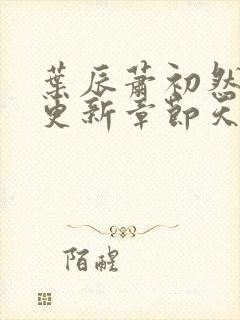 葉辰蕭初然
更新章節天
陌醒